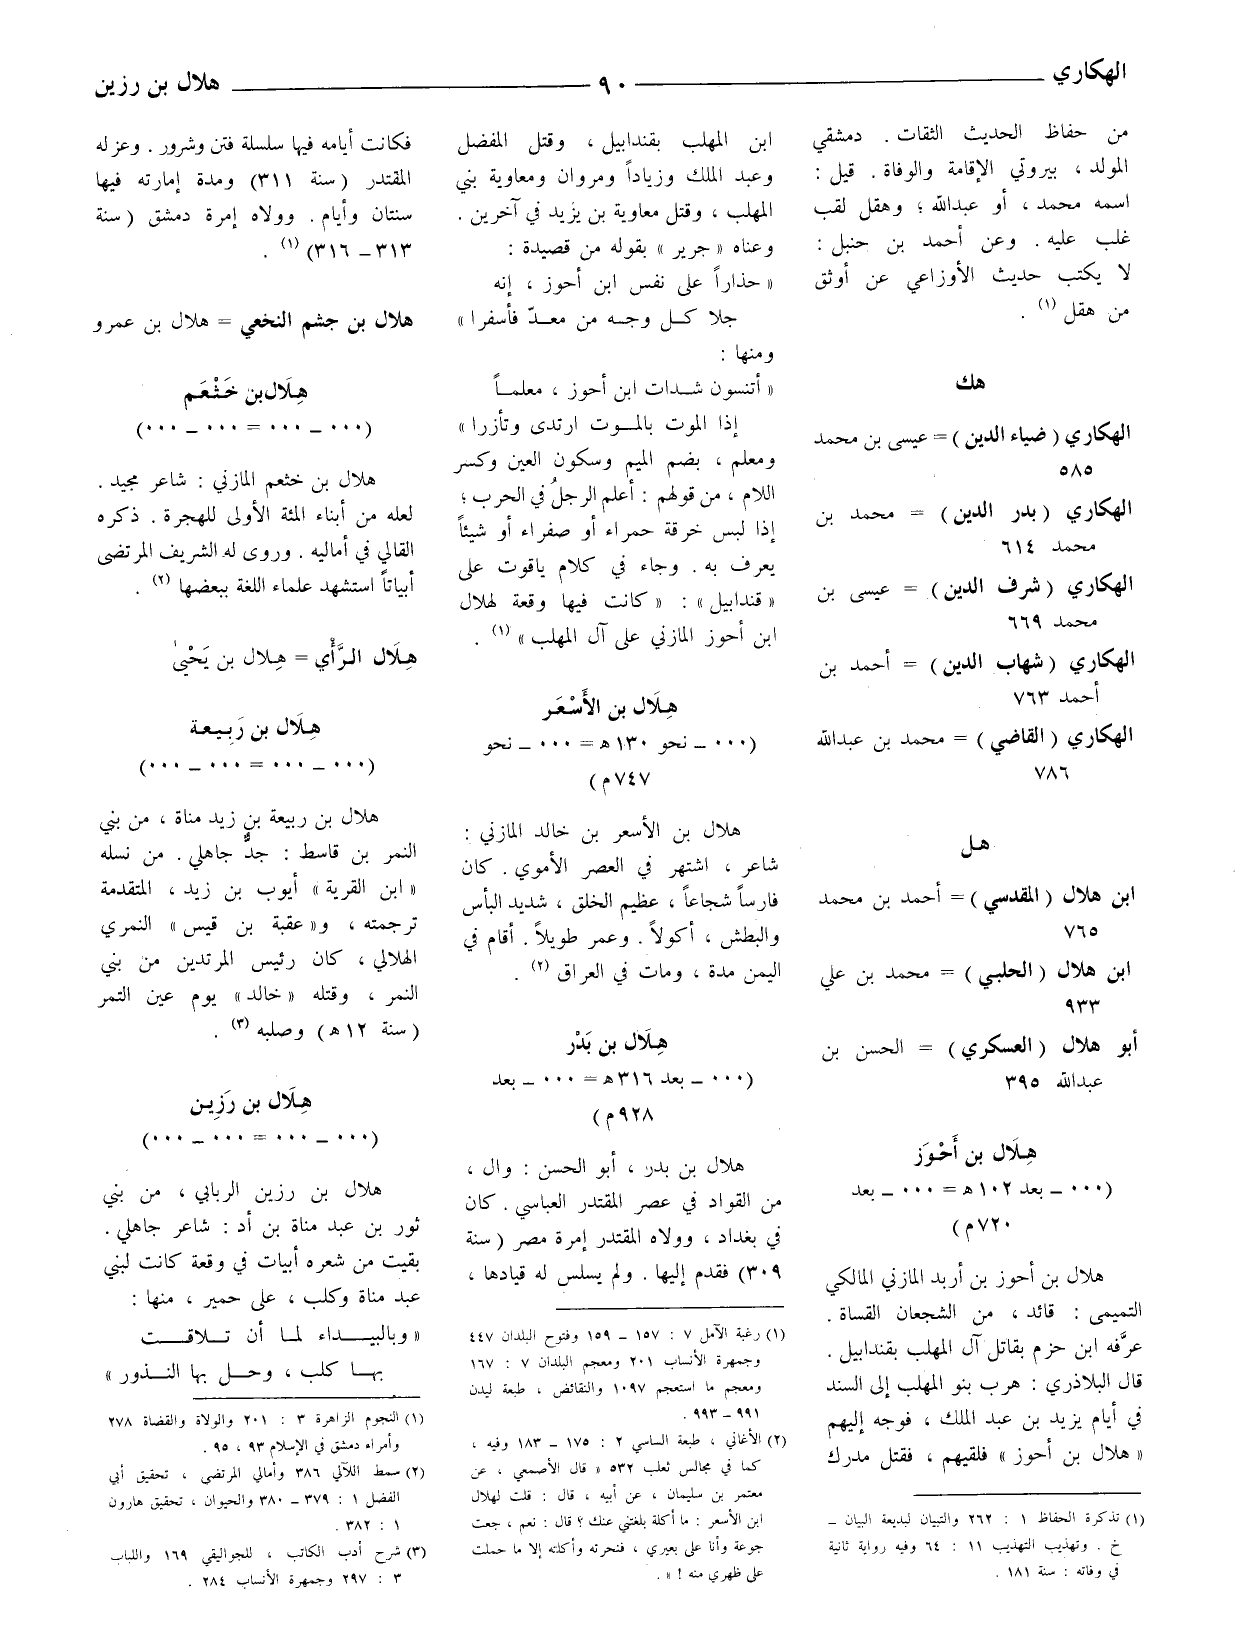 الهكاري ــــــ ٩٠ ــــــ هلال بن رزين
من حفاظ الحديث الثقات . دمشقي
المولد ، بيروتي الإقامة والوفاة . قيل :
اسمه محمد ، أو عبدالله ؛ وهقل لقب
غلب عليه . وعن أحمد بن حنبل :
لا يكتب حديث الأوزاعي عن أوثق
من هقل (١) .
هك
الهكاري ( ضياء الدين ) = عيسى بن محمد
٥٨٥
الهكاري ( بدر الدين ) = محمد بن
محمد ٦١٤
الهكاري ( شرف الدين ) = عيسى بن
محمد ٦٦٩
الهكاري ( شهاب الدين ) = أحمد بن
أحمد ٧٦٣
الهكاري ( القاضي ) = محمد بن عبدالله
٧٨٦
هل
ابن هلال ( المقدسي ) = أحمد بن محمد
٧٦٥
ابن هلال ( الحلبي ) = محمد بن علي
٩٣٣
أبو هلال ( العسكري ) = الحسن بن
عبدالله ٣٩٥
هِلَال بن أَحْوَز
( ٠٠٠ ـ بعد ١٠٢ هـ = ٠٠٠ ـ بعد
٧٢٠ م )
هلال بن أحوز بن أربد المازني المالكي
التميمي : قائد ، من الشجعان القساة .
عرَّفه ابن حزم بقاتل آل المهلب بقندابيل .
قال البلاذري : هرب بنو المهلب إلى السند
في أيام يزيد بن عبد الملك ، فوجه إليهم
« هلال بن أحوز » فلقيهم ، فقتل مدرك
(١) تذكرة الحفاظ ١ : ٢٦٢ والتبيان لبديعة البيان ـ
خ . وتهذيب التهذيب ١١ : ٦٤ وفيه رواية ثانية
في وفاته : سنة ١٨١ .
ابن المهلب بقندابيل ، وقتل المفضل
وعبد الملك وزياداً ومروان ومعاوية بني
المهلب ، وقتل معاوية بن يزيد في آخرين .
وعناه « جرير » بقوله من قصيدة :
« حذاراً على نفس ابن أحوز ، إنه
جلا كل وجه من معدّ فأسفرا »
ومنها :
« أتنسون شدات ابن أحوز ، معلماً
إذا الموت بالموت ارتدى وتأزرا »
ومعلم ، بضم الميم وسكون العين وكسر
اللام ، من قولهم : أعلم الرجلُ في الحرب ؛
إذا لبس خرقة حمراء أو صفراء أو شيئاً
يعرف به . وجاء في كلام ياقوت على
« قندابيل » : « كانت فيها وقعة لهلال
ابن أحوز المازني على آل المهلب » (١) .
هِلَال بن الأَسْعَر
( ٠٠٠ ـ نحو ١٣٠ هـ = ٠٠٠ ـ نحو
٧٤٧ م )
هلال بن الأسعر بن خالد المازني :
شاعر ، اشتهر في العصر الأموي . كان
فارساً شجاعاً ، عظيم الخلق ، شديد البأس
والبطش ، أكولاً . وعمر طويلاً . أقام في
اليمن مدة ، ومات في العراق (٢) .
هِلَال بن بَدْر
( ٠٠٠ ـ بعد ٣١٦ هـ = ٠٠٠ ـ بعد
٩٢٨ م )
هلال بن بدر ، أبو الحسن : وال ،
من القواد في عصر المقتدر العباسي . كان
في بغداد ، وولاه المقتدر إمرة مصر ( سنة
٣٠٩ ) فقدم إليها . ولم يسلس له قيادها ،
(١) رغبة الآمل ٧ : ١٥٧ ـ ١٥٩ وفتوح البلدان ٤٤٧
وجمهرة الأنساب ٢٠١ ومعجم البلدان ٧ : ١٦٧
ومعجم ما استعجم ١٠٩٧ والنقائض ، طبعة ليدن
٩٩١ ـ ٩٩٣ .
(٢) الأغاني ، طبعة الساسي ٢ : ١٧٥ ـ ١٨٣ وفيه ،
كما في مجالس ثعلب ٥٣٢ « قال الأصمعي ، عن
معتمر بن سليمان ، عن أبيه ، قال : قلت لهلال
ابن الأسعر : ما أكلة بلغتني عنك ؟ قال : نعم ، جعت
جوعة وأنا على بعيري ، فنحرته وأكلته إلا ما حملت
على ظهري منه ! » .
فكانت أيامه فيها سلسلة فتن وشرور . وعزله
المقتدر ( سنة ٣١١ ) ومدة إمارته فيها
سنتان وأيام . وولاه إمرة دمشق ( سنة
٣١٣ ـ ٣١٦ ) (١) .
هلال بن جشم النخعي = هلال بن عمرو
هِلَال بن خَثْعَم
( ٠٠٠ ـ ٠٠٠ = ٠٠٠ ـ ٠٠٠ )
هلال بن خثعم المازني : شاعر مجيد .
لعله من أبناء المئة الأولى للهجرة . ذكره
القالي في أماليه . وروى له الشريف المرتضى
أبياتاً استشهد علماء اللغة ببعضها (٢) .
هِلَال الرَّأْي = هِلال بن يَحْيىٰ
هِلَال بن رَبِيعة
( ٠٠٠ ـ ٠٠٠ = ٠٠٠ ـ ٠٠٠ )
هلال بن ربيعة بن زيد مناة ، من بني
النمر بن قاسط : جدٌّ جاهلي . من نسله
« ابن القرية » أيوب بن زيد ، المتقدمة
ترجمته ، و« عقبة بن قيس » النمري
الهلالي ، كان رئيس المرتدين من بني
النمر ، وقتله « خالد » يوم عين التمر
( سنة ١٢ هـ ) وصلبه (٣) .
هِلَال بن رَزِين
( ٠٠٠ ـ ٠٠٠ = ٠٠٠ ـ ٠٠٠ )
هلال بن رزين الربابي ، من بني
ثور بن عبد مناة بن أد : شاعر جاهلي .
بقيت من شعره أبيات في وقعة كانت لبني
عبد مناة وكلب ، على حمير ، منها :
« وبالبيداء لما أن تلاقت
بها كلب ، وحل بها النذور »
(١) النجوم الزاهرة ٣ : ٢٠١ والولاة والقضاة ٢٧٨
وأمراء دمشق في الإسلام ٩٣ ، ٩٥ .
(٢) سمط اللآلي ٣٨٦ وأمالي المرتضى ، تحقيق أبي
الفضل ١ : ٣٧٩ ـ ٣٨٠ والحيوان ، تحقيق هارون
١ : ٣٨٢ .
(٣) شرح أدب الكاتب ، للجواليقي ١٦٩ واللباب
٣ : ٢٩٧ وجمهرة الأنساب ٢٨٤ .